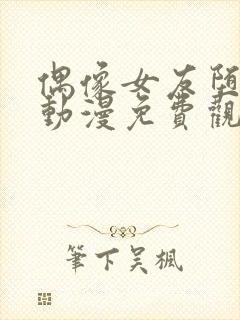 偶像女友堕
動漫免費觀
筆下吴楓